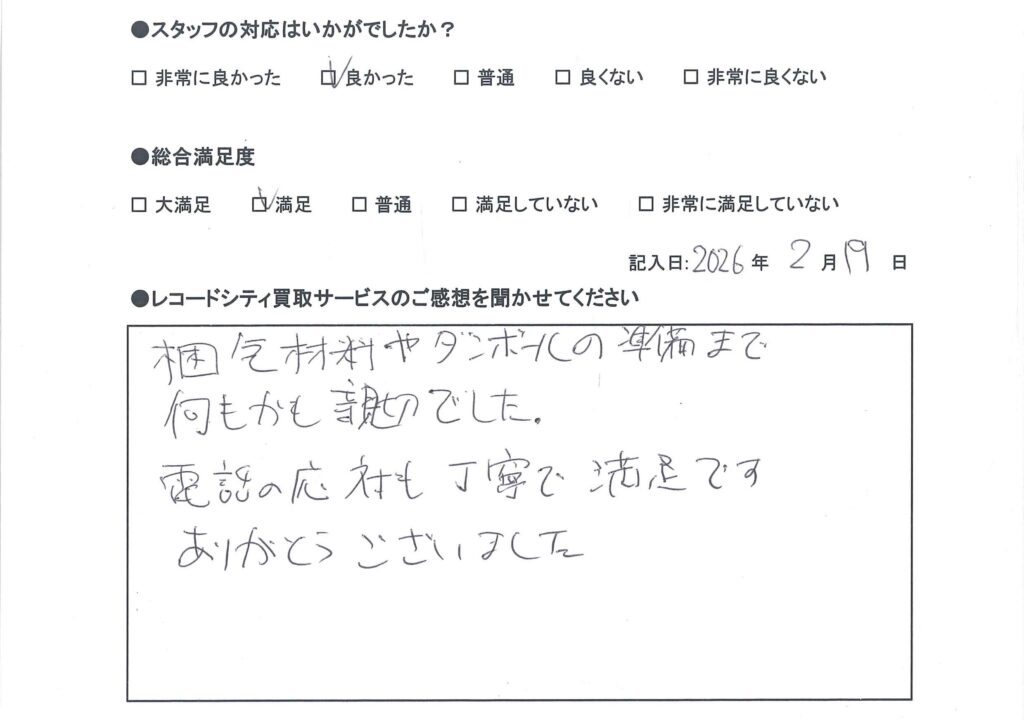 ●スタッフの対応はいかがでしたか?
□ 非常に良かった ☑ 良かった □ 普通 □ 良くない □ 非常に良くない
●総合満足度
□ 大満足 ☑ 満足 □ 普通 □ 満足していない □ 非常に満足していない
記入日:2026年 2月19日
●レコードシティ買取サービスのご感想を聞かせてください
梱包材料やダンボールの準備まで
何もかも親切でした.
電話の応対も丁寧で満足です
ありがとうございました